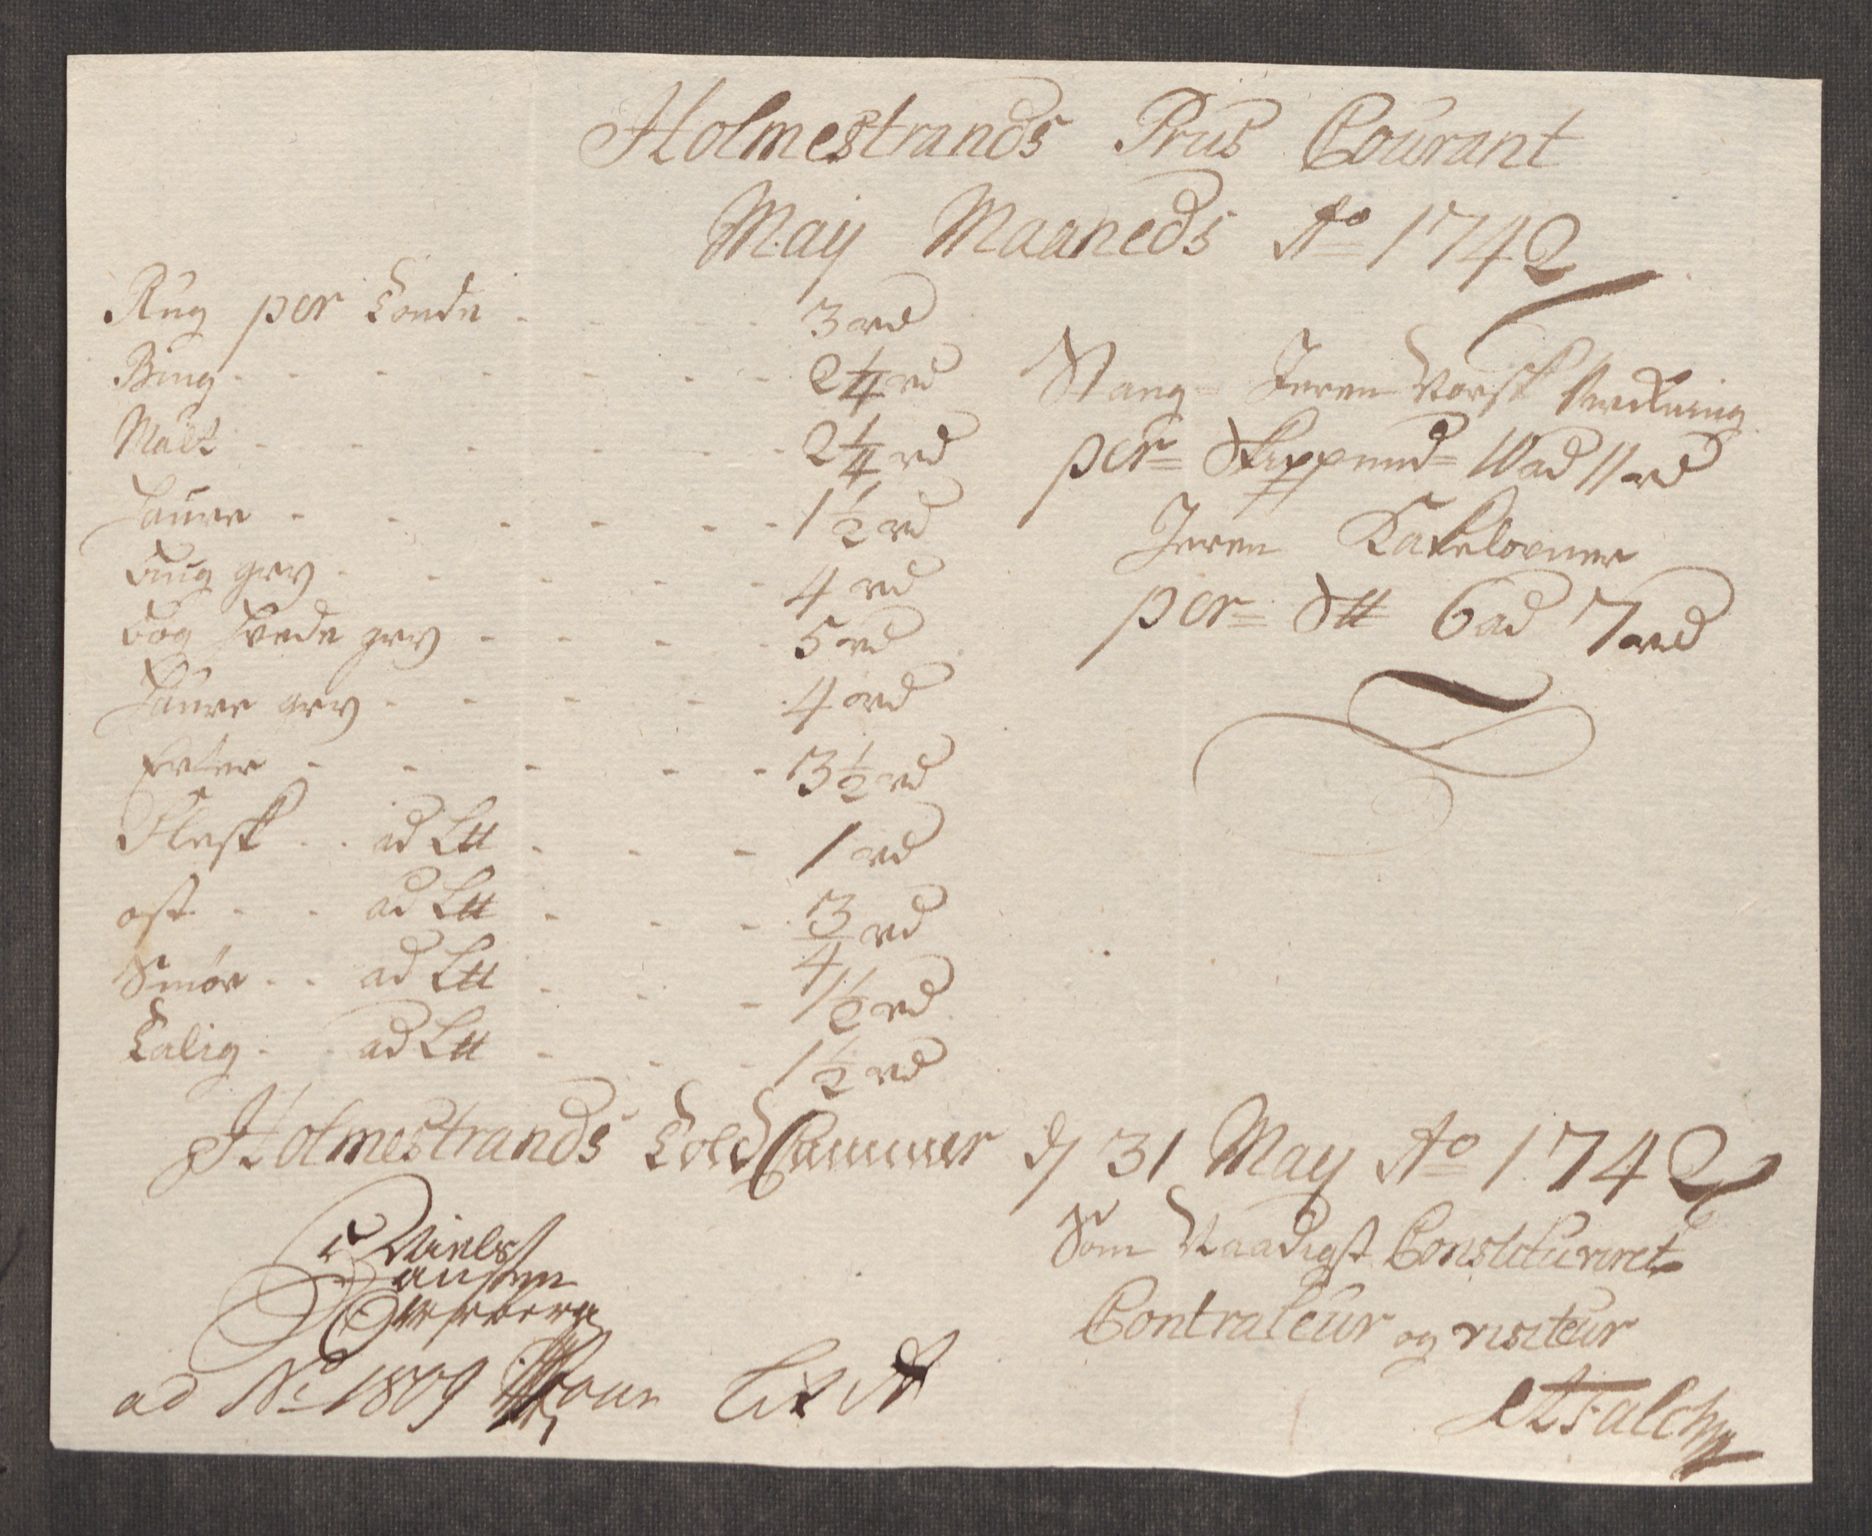 Holmestrands Prus Courant
May Maaneds Ao 1742
Rug per Tonde - - - 3 rd
Biug - - - - - - 2 1/4 rd
Malt - - - - - - 2 1/4 rd
Haure - - - - - - 1 1/2 rd
Biug gry - - - - - 4 rd
Bog Hvede gry - - - - 5 rd
Haure gry - - - - - 4 rd
Erter - - - - - 3 1/2 rd
Flesk - - ad Ltt - - - 1 rd
ost - - ad Ltt - - - 3/4 rd
Smør - - ad Ltt - - - 1 1/2 rd
Talig - - ad Ltt - - - 1 1/2 rd
Stang Jeren Norsk Virkning
per Skippund 10 ad 11 rd
Jeren Kakelovner
per Stt 6 ad 7 rd
Holmestrands Told Cammer d 31 May Ao 1742
Niels
Hansen
Som Naadigst Constitueret
Contraleur og visiteur
AFalch
ad No 1809 Lit A